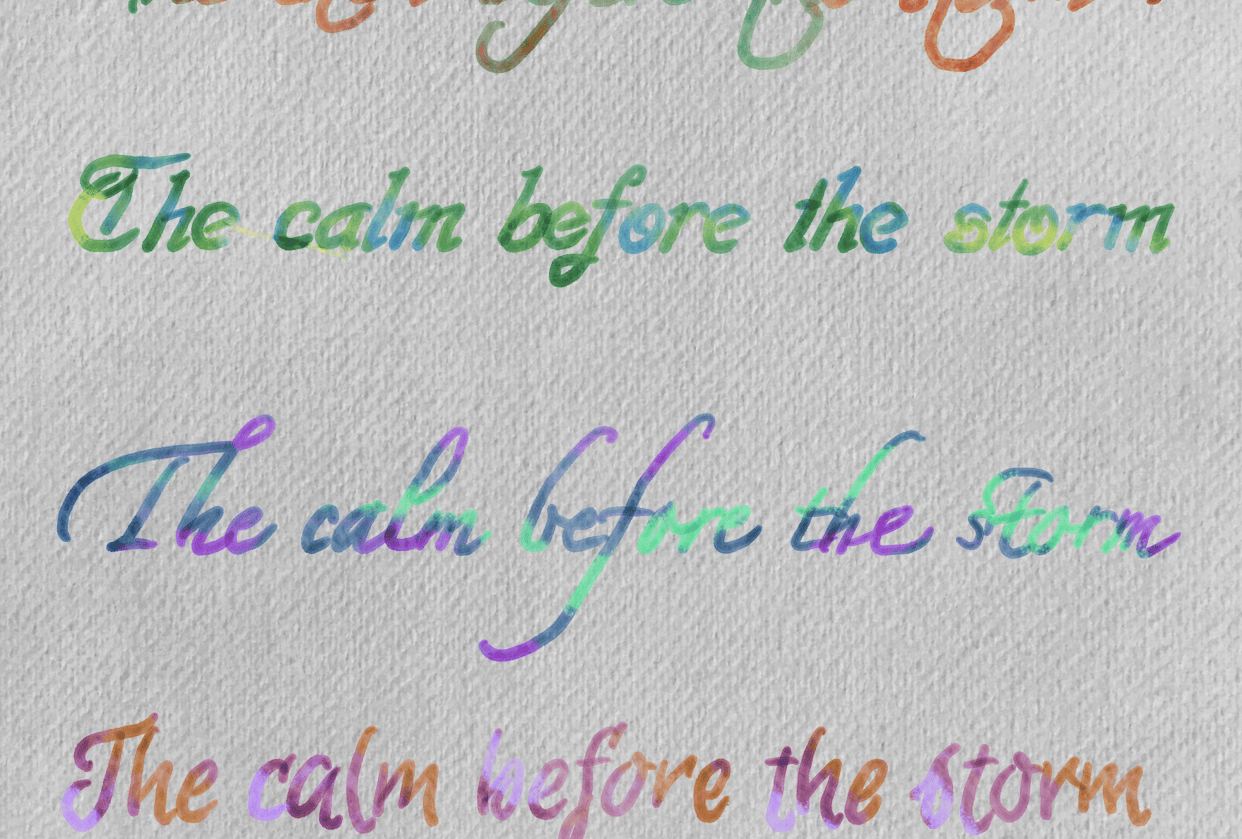 The calm before the storm
The calm before the storm
The calm before the storm